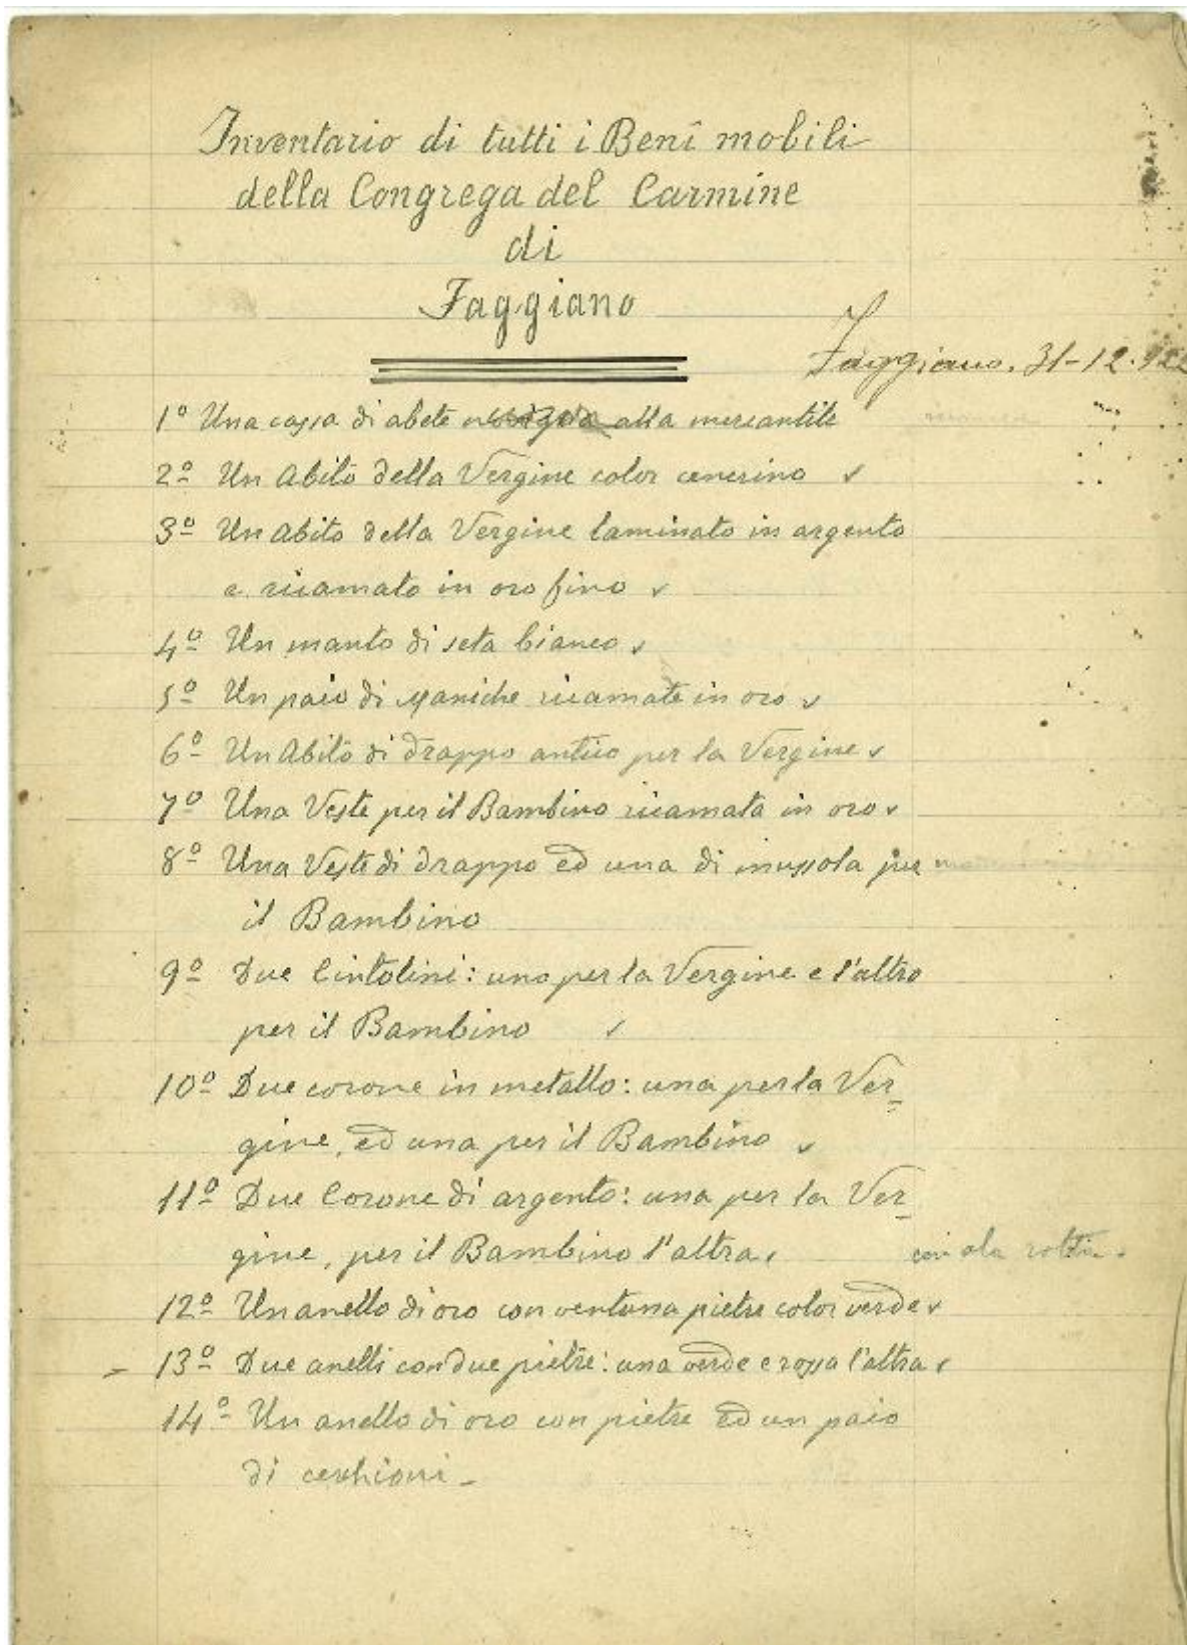 Inventario di tutti i Beni mobili
della Congrega del Carmine
di
Faggiano
Faggiano. 31-12-922
1º Una cassa di abete alla mercantile
2º Un Abito della Vergine color cenerino ✓
3º Un Abito della Vergine laminato in argento
e ricamato in oro fino ✓
4º Un manto di seta bianco ✓
5º Un paio di maniche ricamate in oro ✓
6º Un Abito di drappo antico per la Vergine ✓
7º Una Veste per il Bambino ricamata in oro ✓
8º Una Veste di drappo ed una di mussola per
il Bambino
9º Due Cintolini: uno per la Vergine e l'altro
per il Bambino ✓
10º Due corone in metallo: una per la Ver=
gine, ed una per il Bambino ✓
11º Due Corone di argento: una per la Ver=
gine, per il Bambino l'altra ✓ rotta.
12º Un anello di oro con ventuna pietre color verde ✓
- 13º Due anelli con due pietre: una verde e rossa l'altra ✓
14º Un anello di oro con pietre ed un paio
di cerchioni -